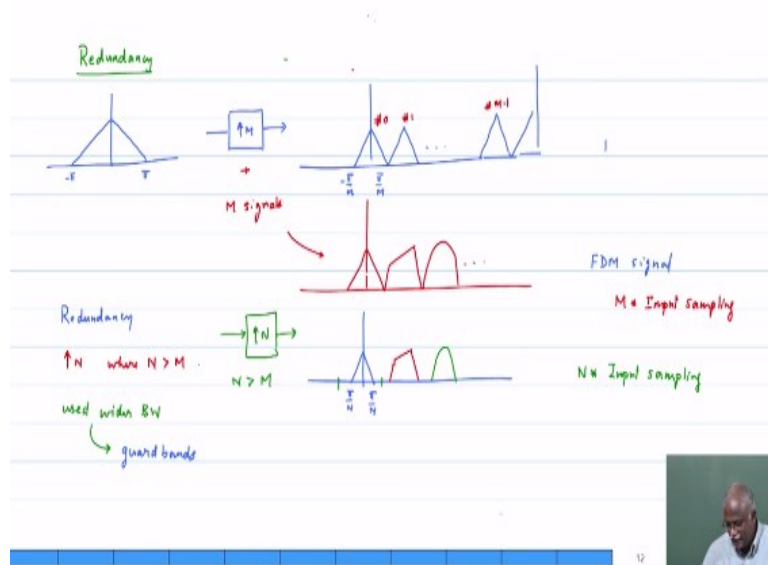 Redundancy
#0 #1 #M-1
↑M
...
-π π
-π/M π/M
+
M signals
...
FDM signal
M * Input sampling
Redundancy
↑N where N > M.
↑N
N > M
N * Input sampling
π/N π/N
used wider BW
guard bands
12